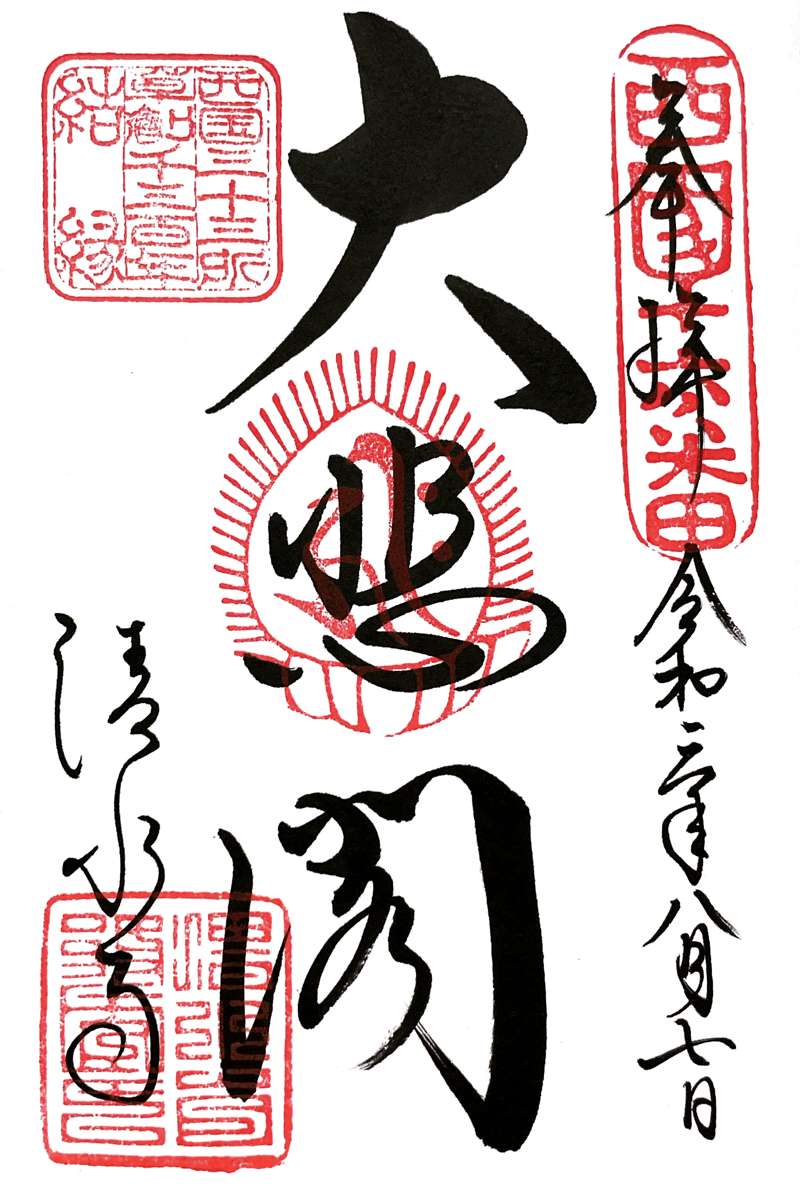 西國十六番
奉拝
令和二年八月七日
大悲閣
西国三十三所
草創千三百年
結縁
清水寺